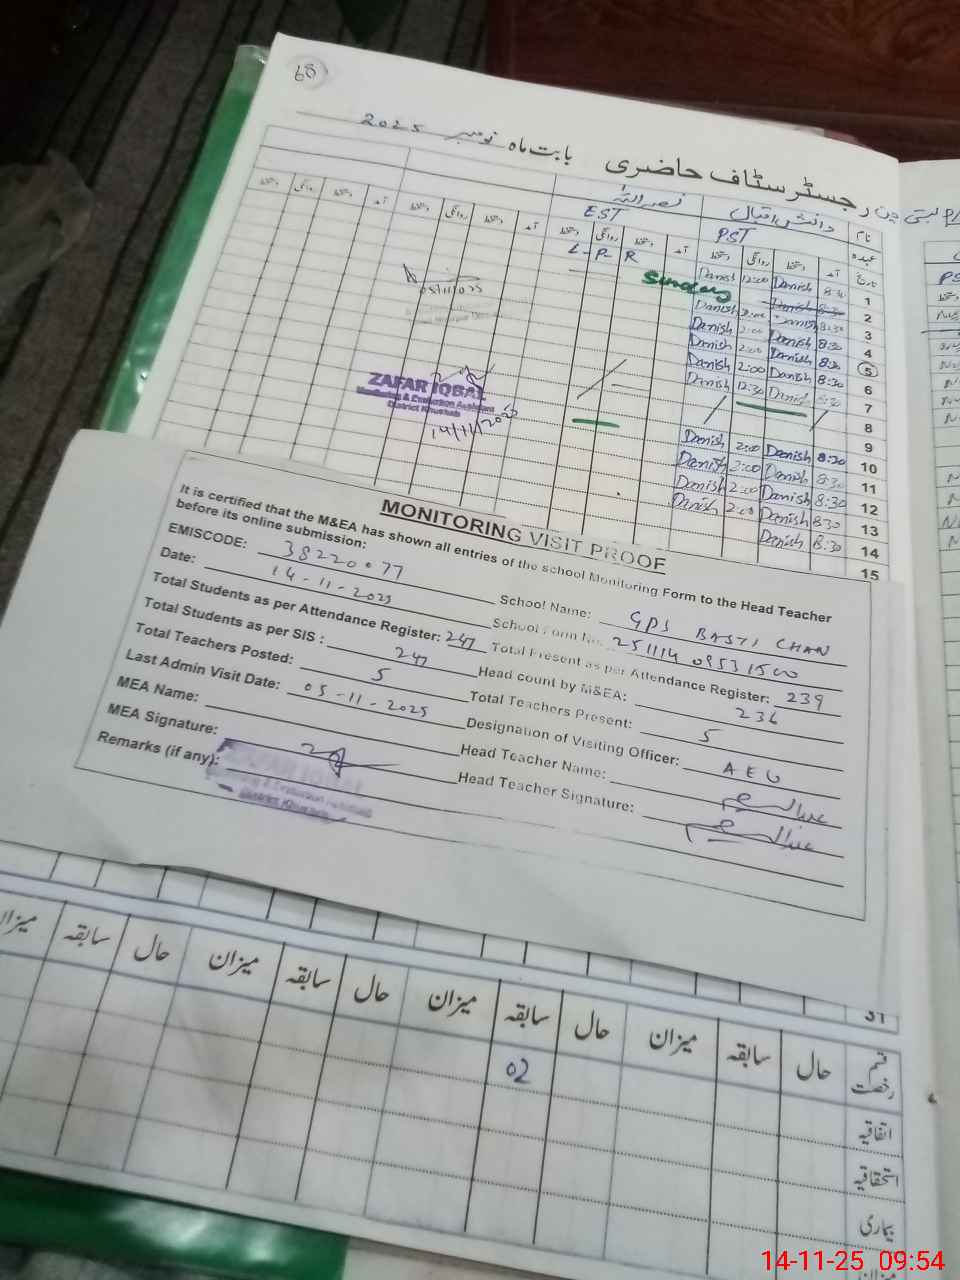 68
رجسٹر سٹاف حاضری بابت ماہ نومبر 2025
نام دانش اقبال نصر اللہ
عہدہ PST EST
تاریخ آمد دستخط روانگی دستخط آمد دستخط روانگی دستخط آمد دستخط روانگی دستخط
L-P R
1 8:30 Danish 12:00 Danish
2 Danish 8:30 Sunday
3 8:30 Danish 2:00 Danish
4 8:30 Danish 2:00 Danish
5 8:30 Danish 2:00 Danish
6 8:30 Danish 2:00 Danish
7 8:30 Danish 12:30 Danish
8
9
10 8:30 Danish 2:00 Danish
11 8:30 Danish 2:00 Danish
12 8:30 Danish 2:00 Danish
13 8:30 Danish 2:00 Danish
14 8:30 Danish
15
05/11/2025
ZAFAR IQBAL
Monitoring & Evaluation Assistant
District Khushab
14/11/2025
MONITORING VISIT PROOF
It is certified that the M&EA has shown all entries of the school Monitoring Form to the Head Teacher
before its online submission:
EMISCODE: 38220077 School Name: GPS BASTI CHAN
Date: 14-11-2025 School Form No. 251114 09531500
Total Students as per Attendance Register: 247 Total Present as per Attendance Register: 239
Total Students as per SIS : 247 Head count by M&EA: 236
Total Teachers Posted: 5 Total Teachers Present: 5
Last Admin Visit Date: 05-11-2025 Designation of Visiting Officer: AEO
MEA Name: Head Teacher Name:
MEA Signature: Head Teacher Signature:
Remarks (if any):
ZAFAR IQBAL
Monitoring & Evaluation Assistant
District Khushab
31
قسم رخصت حال سابقہ میزان حال سابقہ میزان حال سابقہ میزان حال سابقہ میزان
اتفاقیہ 02
استحقاقیہ
بیماری
میزان
14-11-25 09:54